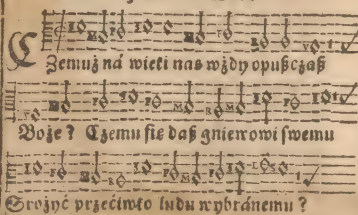 CZemuż ná wieki nas wżdy opuśczaß
Boże ? Czemu się daß gniewowi swemu
Srożyć przećiwko ludu wybránemu ?